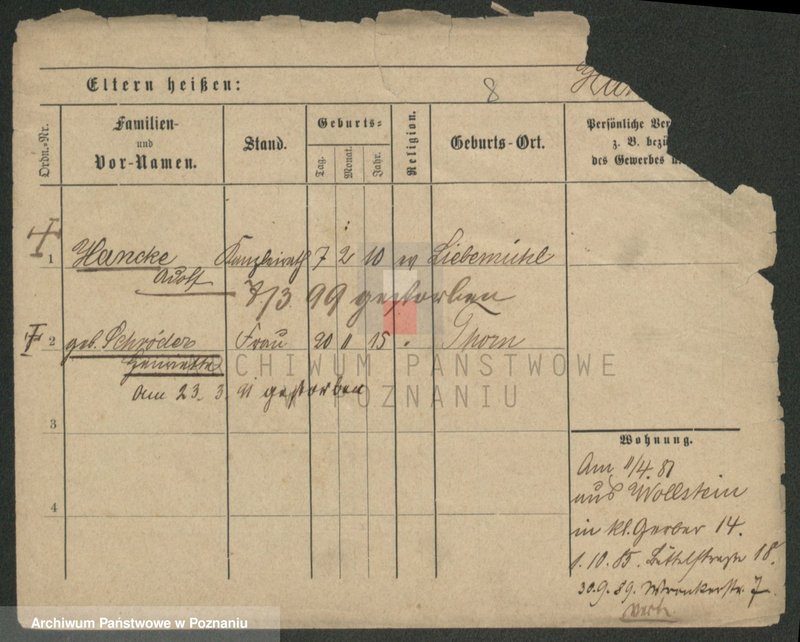 Eltern heißen:
8
Ha
Ordn.-Nr.
Familien-
und
Vor-Namen.
Stand.
Geburts-
Tag.
Monat.
Jahr.
Religion.
Geburts-Ort.
Persönliche Ver
z. B. bezü
des Gewerbes u
1 Hancke Kanzleirath 7 2 10 ev Liebemühl
Adolf
8/3. 99 gestorben
2 geb. Schröder Frau 20 11 15 " Thorn
Henriette
Am 23. 3. 91 gestorben
3
4
Wohnung.
Am 11/4. 81
aus Wollstein
in kl. Gerber 14.
1.10.85. Büttelstraße 18.
30.9.89. Wronkerstr. 7
verte
ARCHIWUM PAŃSTWOWE
W POZNANIU
Archiwum Państwowe w Poznaniu